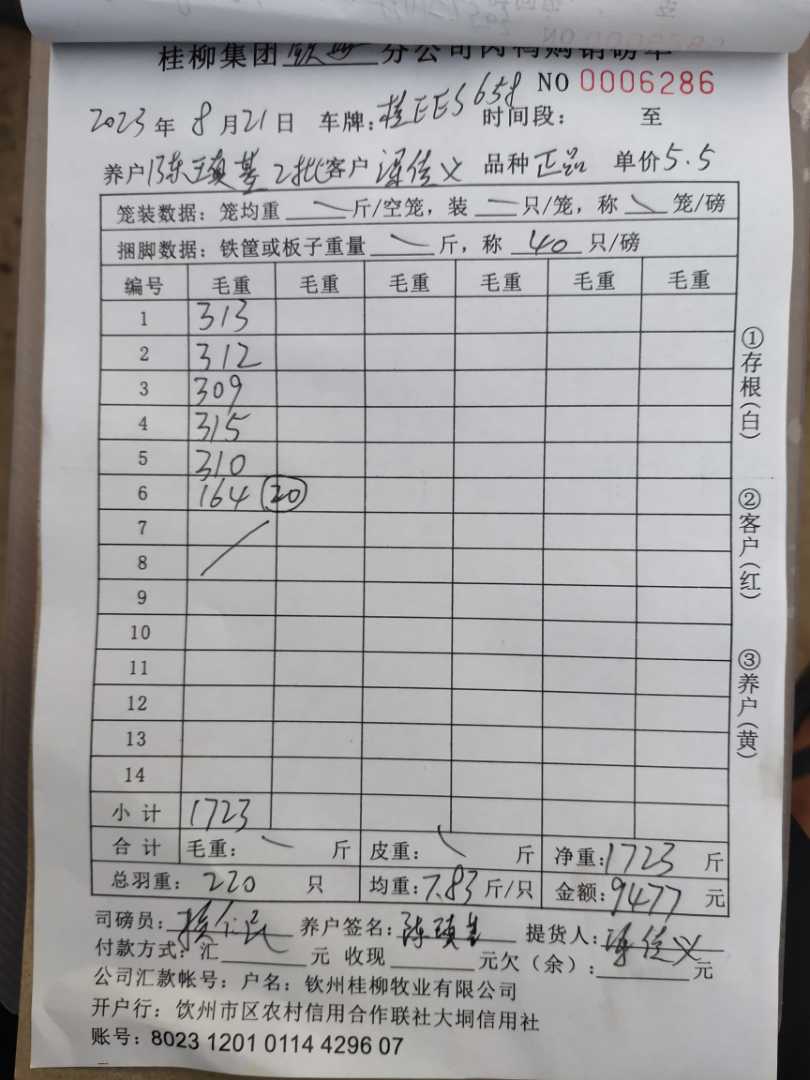 桂柳集团钦州分公司肉鸭购销磅单
NO 0006286
2023年8月21日 车牌:桂EES658 时间段: 至
养户 陈 基2批客户 佳义 品种 正品 单价5.5
笼装数据:笼均重 斤/空笼,装 只/笼,称 笼/磅
捆脚数据:铁筐或板子重量 斤,称 40 只/磅
编号 毛重 毛重 毛重 毛重 毛重 毛重
1 313
2 312
3 309
4 315
5 310
6 164 20
7
8
9
10
11
12
13
14
小计 1723
合计 毛重: 斤 皮重: 斤 净重:1723 斤
总羽重: 220 只 均重:7.83斤/只 金额:9477 元
司磅员: 养户签名:陈 提货人: 佳义
付款方式:汇 元 收现 元欠(余): 元
公司汇款帐号:户名:钦州桂柳牧业有限公司
开户行:饮州市区农村信用合作联社大垌信用社
账号:8023 1201 0114 4296 07
①存根(白)
②客户(红)
③养户(黄)